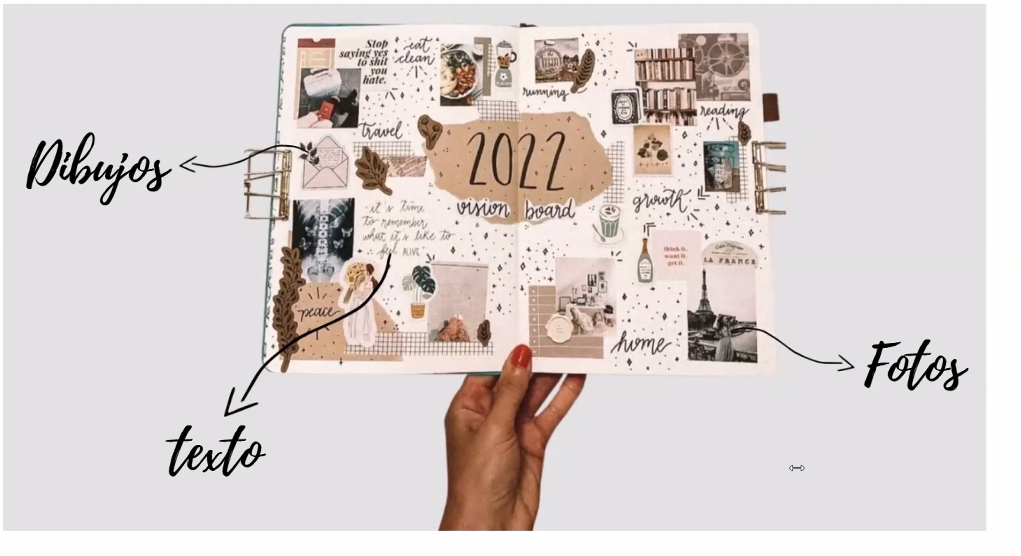 Stop
saying yes
to shit
you
hate.
eat
clean
running
reading
travel
2022
vision board
growth
it's time
to remember
what it's like to
feel ALIVE
think it.
want it.
get it.
LA FRANCE
peace
home
Dibujos
texto
Fotos